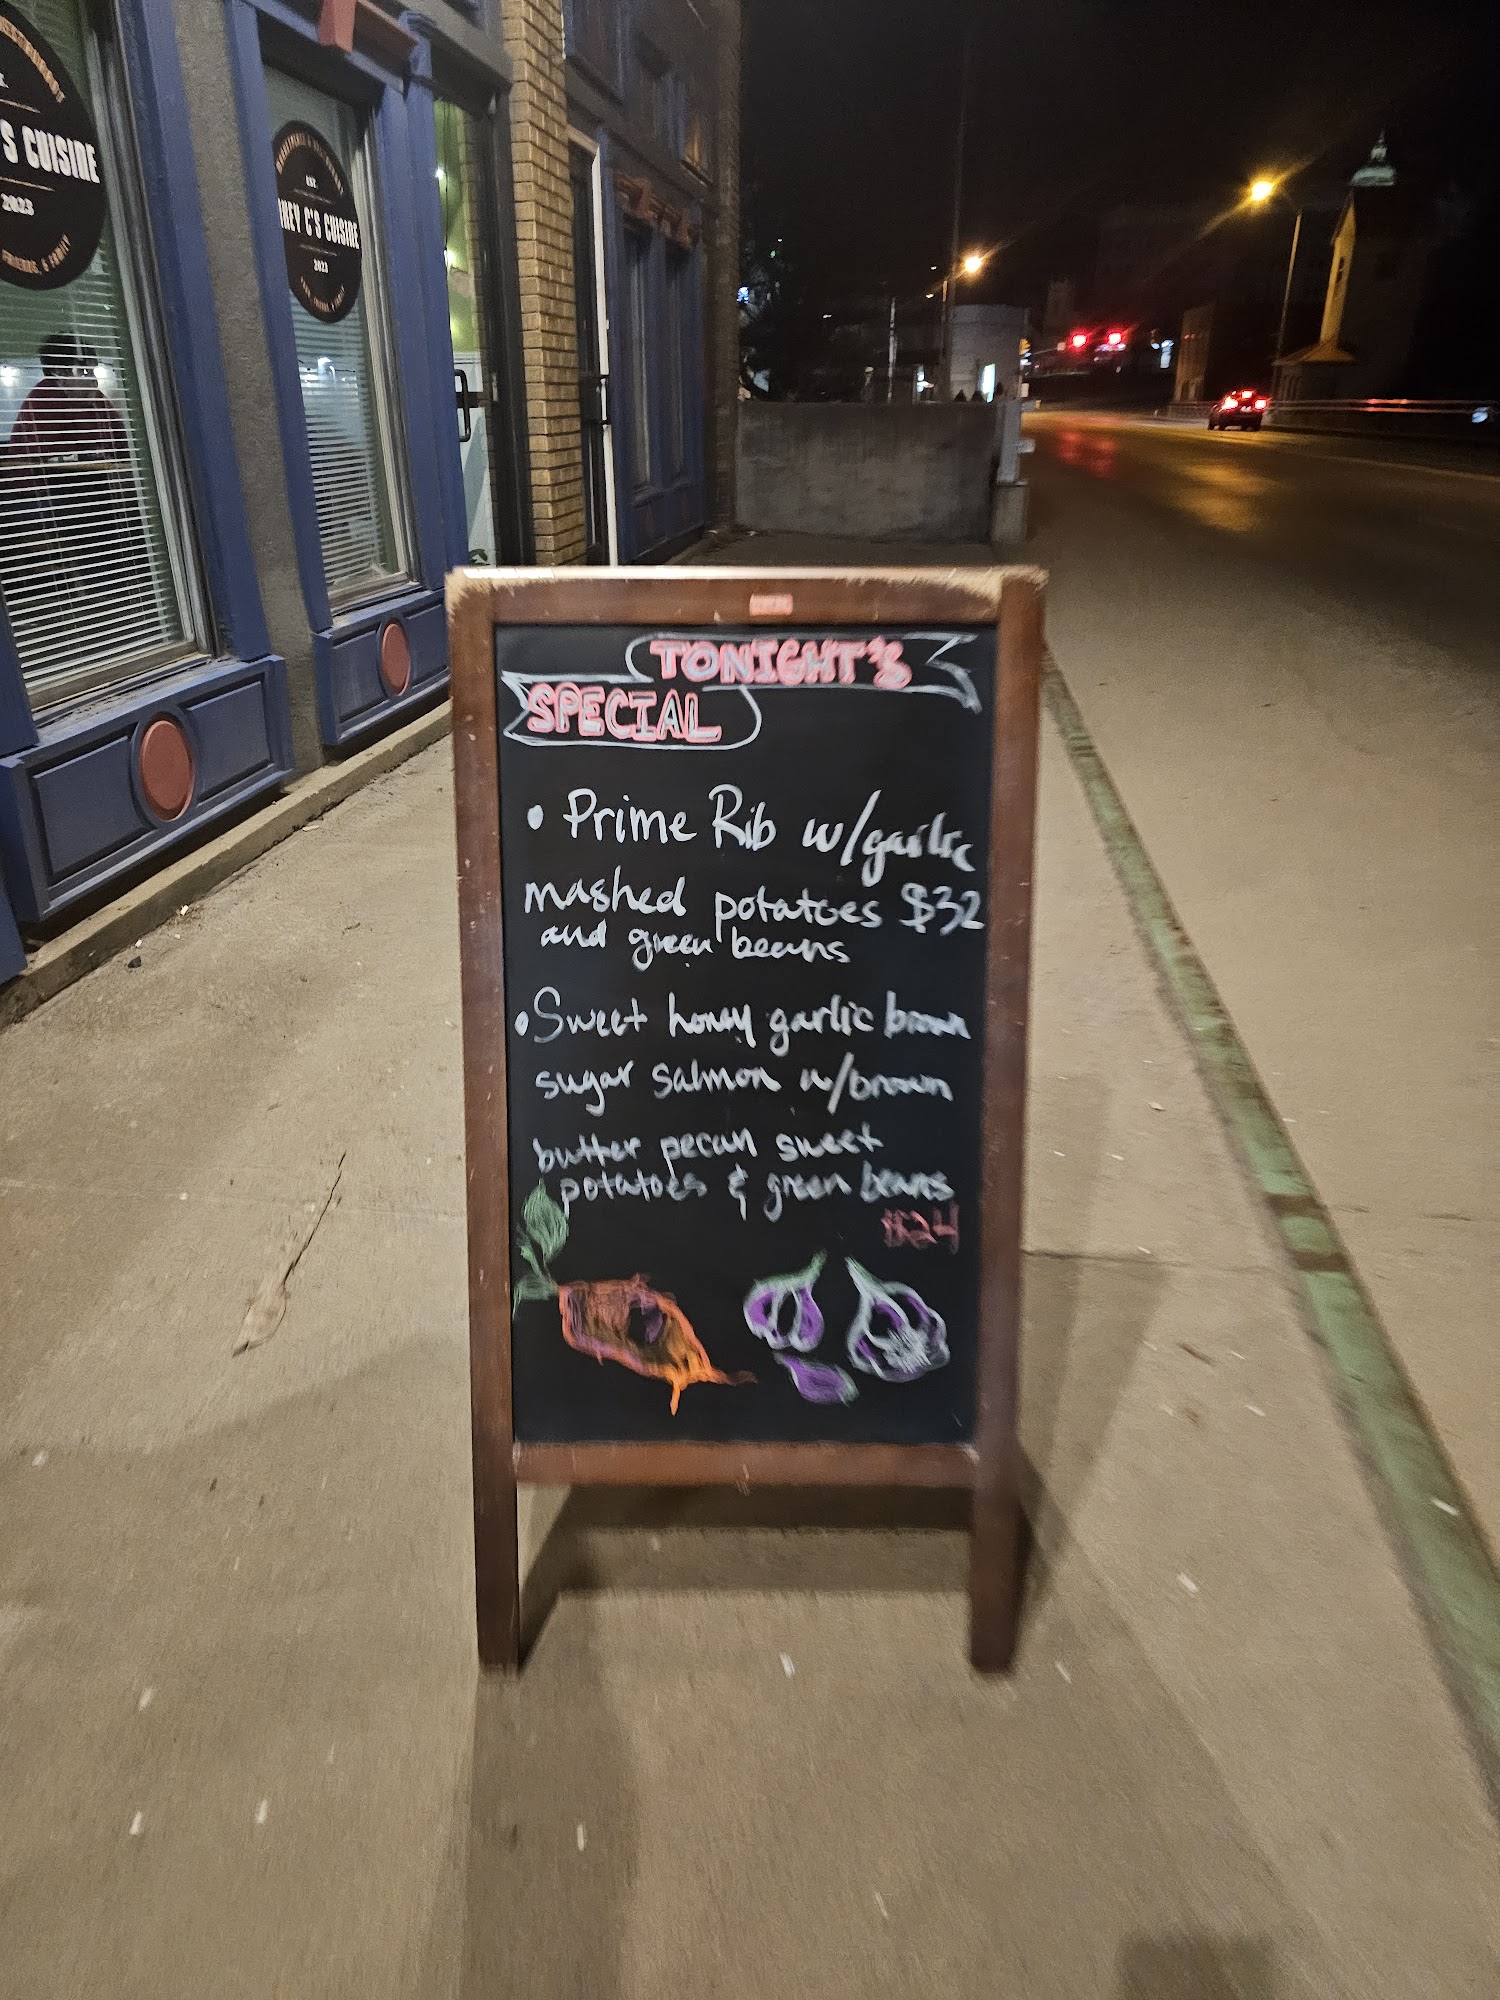 S CUISINE
2023
FRIENDS, & FAMILY
EST.
KEY C'S CUISINE
2023
TONIGHT'S
SPECIAL
• Prime Rib w/garlic
mashed potatoes $32
and green beans
• Sweet honey garlic brown
sugar salmon w/brown
butter pecan sweet
potatoes & green beans
$24